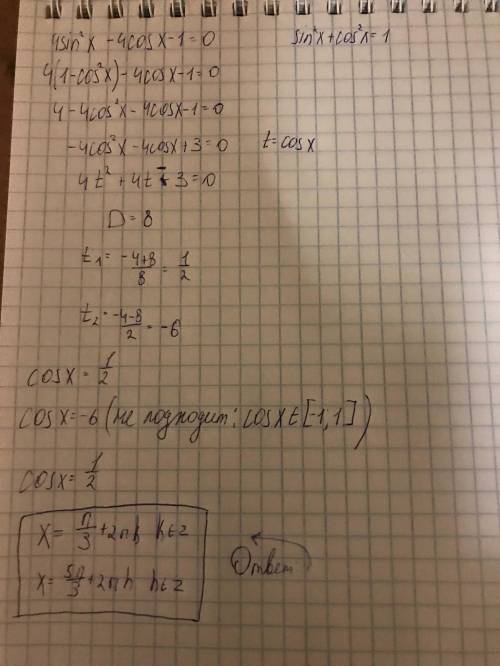 4sin²x - 4cosx - 1 = 0
sin²x + cos²x = 1
4(1 - cos²x) - 4cosx - 1 = 0
4 - 4cos²x - 4cosx - 1 = 0
-4cos²x - 4cosx + 3 = 0
t = cosx
4t² + 4t - 3 = 0
D = 8
t₁ = (-4+8)/8 = 1/2
t₂ = (-4-8)/2 = -6
cosx = 1/2
cosx = -6 (не подходит: cosx ∈ [-1; 1])
cosx = 1/2
x = π/3 + 2πh h ∈ z
Ответ
x = 5π/3 + 2πh h ∈ z